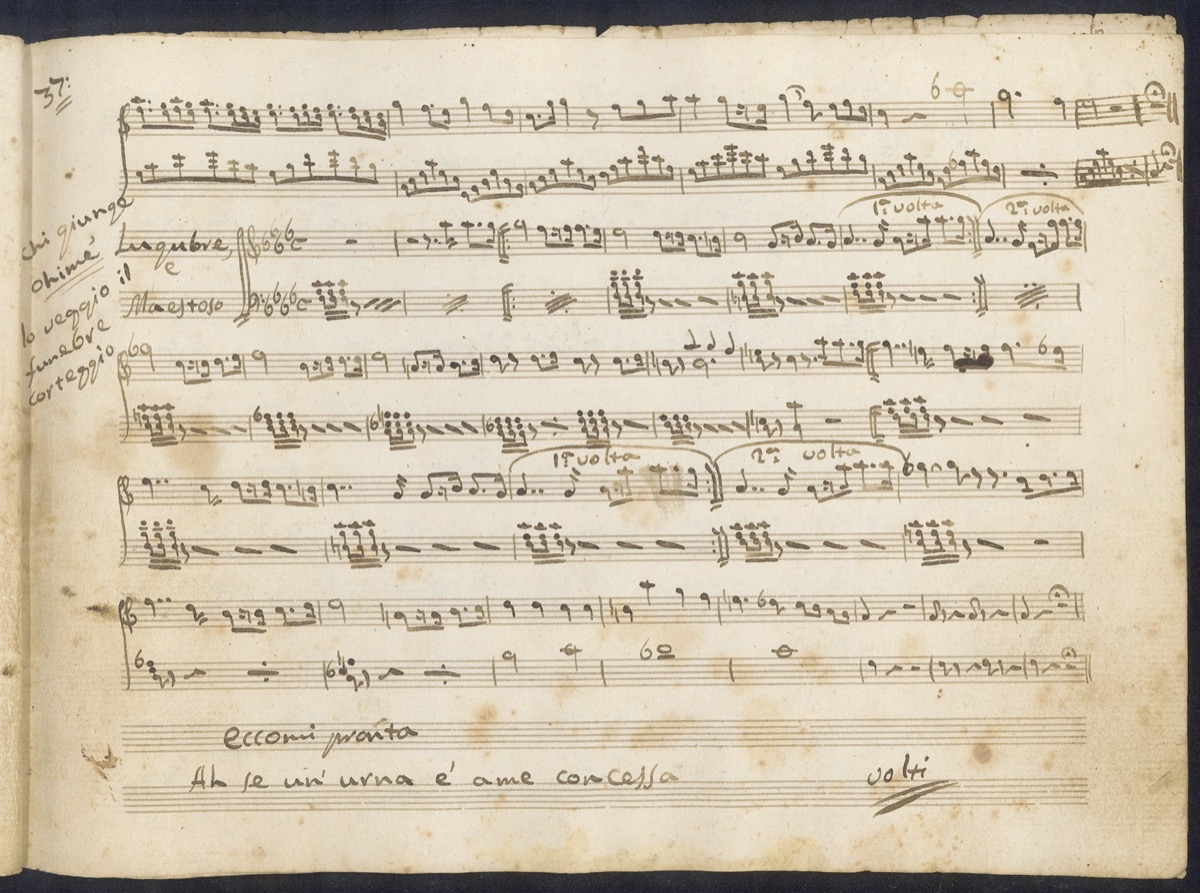 37:
chi giunge
ohimè
io veggio il
funebre
corteggio
Lugubre,
e
Maestoso
1ª volta
2ª volta
1ª volta
2ª volta
eccomi pronta
Ah se un' urna é ame concessa
volti